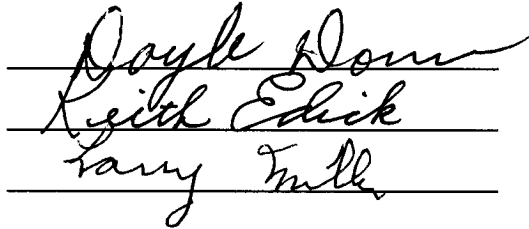 Doyle
Keith Edick
Larry Miller